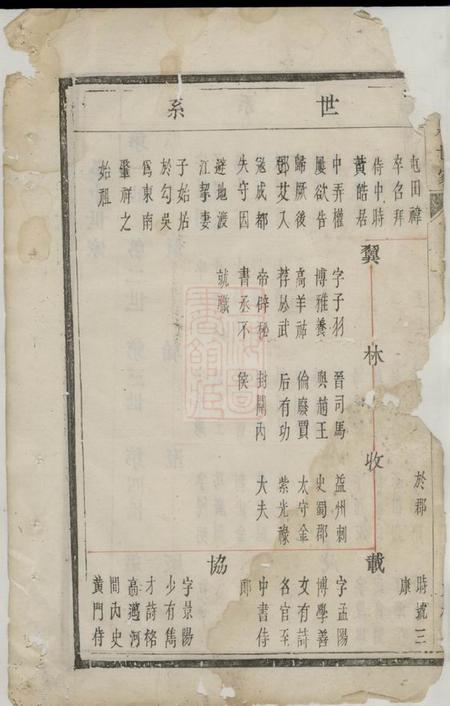 世系
屯田禕
卒召拜
侍中時
黃皓居
中弄權
屢欲告
歸厥後
鄧艾入
寇成都
失守因
避地渡
江挈妻
子始居
於勾吳
為東南
肇祥之
始祖
翼
字子羽
博雅養
高羊祜
荐於武
帝辟秘
書丞不
就職
林
晉司馬
與趙王
倫廢賈
后有功
封關內
侯
收
益州刺
史蜀郡
太守金
紫光祿
大夫
於郡
載
字孟陽
博學善
文有詩
名官至
中書侍
郎
時號三
康
協
字景陽
少有雋
才詩格
高邁河
間內史
黃門侍